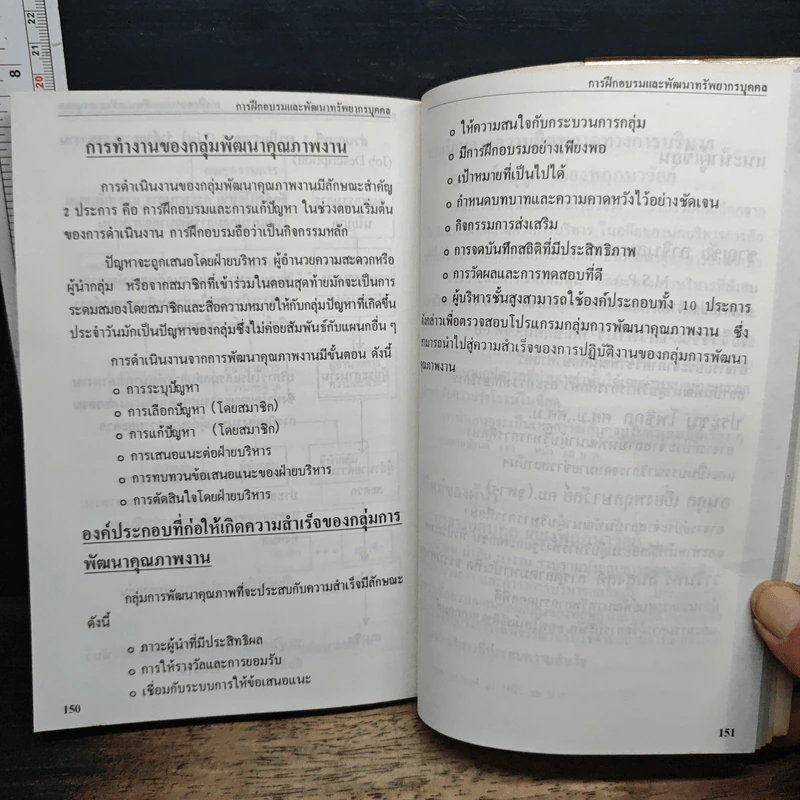 22
21
20
8
การฝึกอบรมและพัฒนาทรัพยากรบุคคล
การทำงานของกลุ่มพัฒนาคุณภาพงาน
การดำเนินงานของกลุ่มพัฒนาคุณภาพงานมีลักษณะสำคัญ
2 ประการ คือ การฝึกอบรมและการแก้ปัญหา ในช่วงตอนเริ่มต้น
ของการดำเนินงาน การฝึกอบรมถือว่าเป็นกิจกรรมหลัก
ปัญหาจะถูกเสนอโดยฝ่ายบริหาร ผู้อำนวยความสะดวกหรือ
ผู้นำกลุ่ม หรือจากสมาชิกที่เข้าร่วมในตอนสุดท้ายมักจะเป็นการ
ระดมสมองโดยสมาชิกและสื่อความหมายให้กับกลุ่มปัญหาที่เกิดขึ้น
ประจำวันมักเป็นปัญหาของกลุ่มซึ่งไม่ค่อยสัมพันธ์กับแผนกอื่น ๆ
การดำเนินงานจากการพัฒนาคุณภาพงานมีขั้นตอน ดังนี้
o การระบุปัญหา
o การเลือกปัญหา (โดยสมาชิก)
o การแก้ปัญหา (โดยสมาชิก)
o การเสนอแนะต่อฝ่ายบริหาร
o การทบทวนข้อเสนอแนะของฝ่ายบริหาร
o การตัดสินใจโดยฝ่ายบริหาร
องค์ประกอบที่ก่อให้เกิดความสำเร็จของกลุ่มการ
พัฒนาคุณภาพงาน
กลุ่มการพัฒนาคุณภาพที่จะประสบกับความสำเร็จมีลักษณะ
ดังนี้
o ภาวะผู้นำที่มีประสิทธิผล
o การให้รางวัลและการยอมรับ
o เชื่อมกับระบบการให้ข้อเสนอแนะ
150
การฝึกอบรมและพัฒนาทรัพยากรบุคคล
o ให้ความสนใจกับกระบวนการกลุ่ม
o มีการฝึกอบรมอย่างเพียงพอ
o เป้าหมายที่เป็นไปได้
o กำหนดบทบาทและความคาดหวังไว้อย่างชัดเจน
o กิจกรรมการส่งเสริม
o การจดบันทึกสถิติที่มีประสิทธิภาพ
o การวัดผลและการทดสอบที่ดี
o ผู้บริหารชั้นสูงสามารถใช้องค์ประกอบทั้ง 10 ประการ
ดังกล่าวเพื่อตรวจสอบโปรแกรมกลุ่มการพัฒนาคุณภาพงาน ซึ่ง
สามารถนำไปสู่ความสำเร็จของการปฏิบัติงานของกลุ่มการพัฒนา
คุณภาพงาน
151